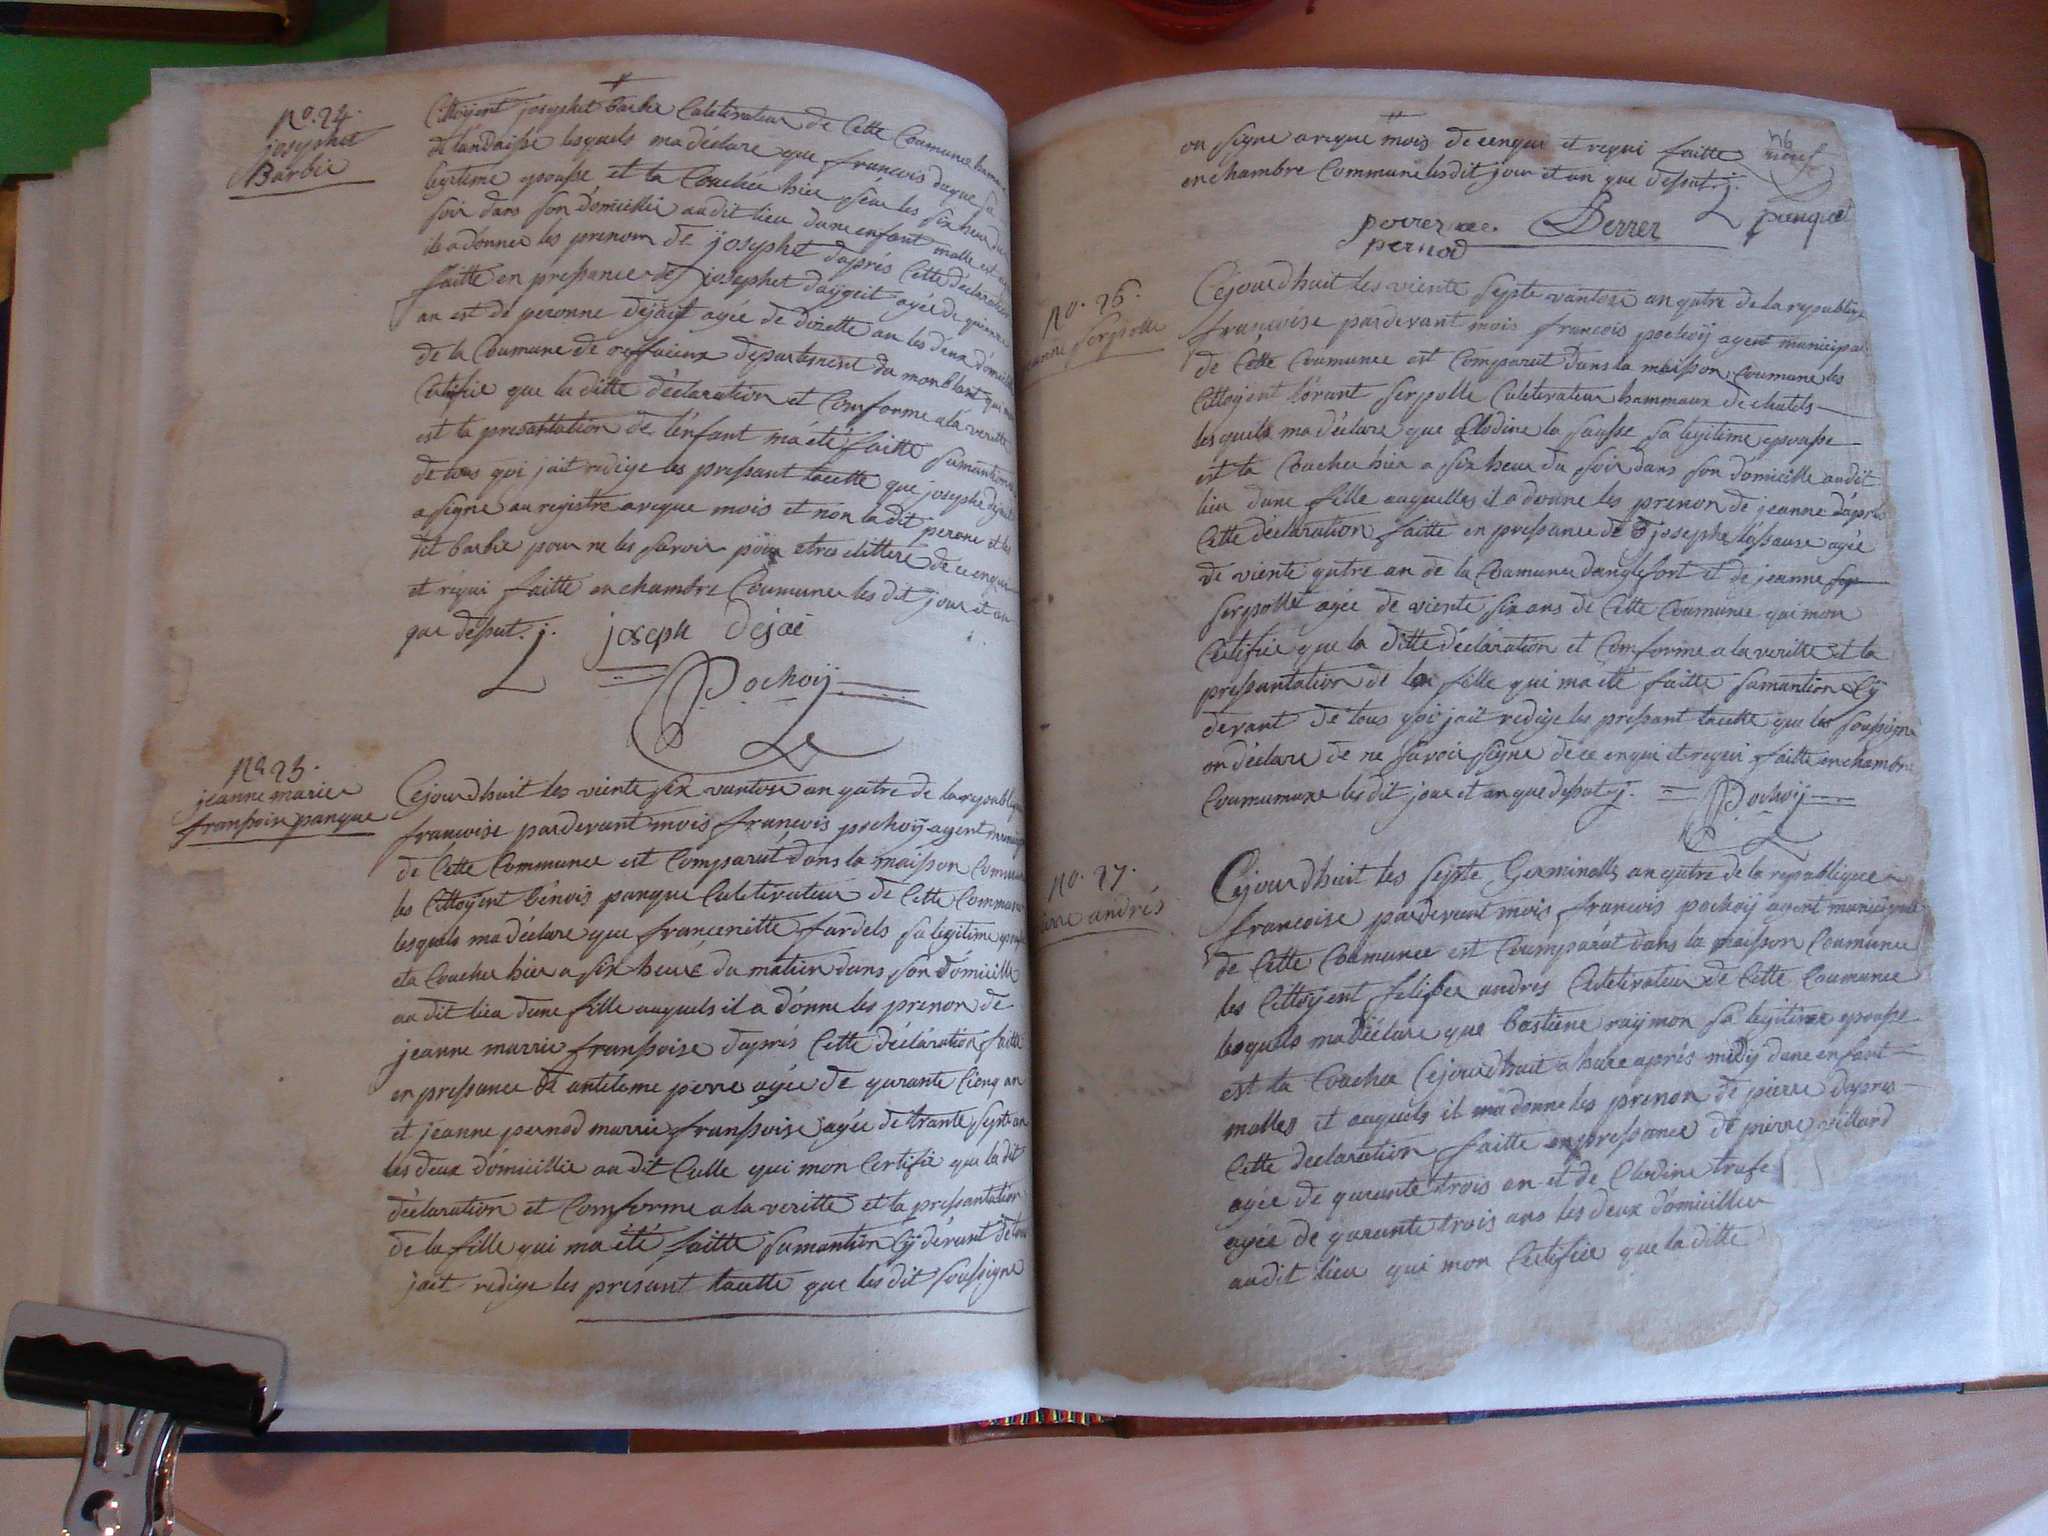 No. 24.
josephet
Barbie
Cittoÿent josephet barbie Culetivateur de Cette Coumune hamau
de landaisse lesquels ma déclare que francois duque sa
legitime epousse et ta Couchée hier les six heur du
soir dans son domicille au dit lieu dune enfant malle est au
ils a donner les prenom de josephet daprés Cette déclaration
faitte en pressance de josephet daÿgeit agée de quienze
an est de peronne déjait agée de dizette an les deux domicilie
de la Coumune de deppartement du monblant qui mon
Certifie que la ditte déclaration et Comforme a la veritte
est ta presantation de l'enfant ma été faitte samantion
de tous qoi jait redige les pressant lacette que josephe dejait
a signe au registre aveque mois et non la dit perone et les
dit barbie pour ne les savoir poin etres élittere de ce enqui
et requi faitte en chambre Coumune les dit jour et an
que desut. j. joseph déjaé
Pochoÿ
No. 25.
jeanne marie
fransoise panque
Cejourdhuit les viente six vantose an qatre de la republique
francoise pardevant mois francois pochoÿ agent municipal
de Cette Commune est Comparut dans la maisson Commune
les Cittoyent bénois panque Culetivateur de Cette Commune
lesquels ma déclare que francenitte fardels sa legitime epousse
eta Coucher hier a six heure du matien dans son domicille
au dit lieu dune fille auquels il a donne les prenon de
jeanne marrie franssoise daprés Cette déclaration faitte
en pressance de antelame perre agée de qurante cienq an
et jeanne pernod marrie franssoise agée de trante septe an
les deux domicillie au dit Culle qui mon Certifie que la dit
déclaration et Comforme a la veritte et ta pressantation
de la fille qui ma été faitte samantion Cÿ dérant de tous
jait redige les present lacette que les dit soussigne
on signe aveque mois de cenqui et requi faitte
en chambre Commune les dit jour et an que dessut. j.
perrez Perrez panque
pernod
No. 26.
jeanne Serpolle
Cejourdhuit les viente septe vantose an qatre de la republique
francoise pardevant mois francois pochoÿ agent municipal
de Cette Coumune est Comparut dans la maisson Coumune les
Cittoyent lorant serpolle Culetivateur hammaux de chatels
lesquels ma déclare que Clodine la sausse sa legitime epousse
est ta Coucher hier a six heur du soir dans son domicille au dit
lieu dune fille auquelles il a donne les prenon de jeanne daprés
Cette déclaration faitte en pressance de josephe lassausse agée
de viente qatre an de la Coumune danglefort et de jeanne ser
serpollet agée de viente six ans de Cette Coumune qui mon
Certifie que la ditte déclaration et Comforme a la veritte et ta
pressantation de la fille qui ma été faitte samantion Cÿ
devant de tous qoi jait redige les pressant lacette que les soussigne
on déclare de ne savoir signe de ce enqui et requi faitte en chambre
Coumumune les dit jour et an que desut j. Pochoÿ
No. 27.
pierre andrés
Cejourdhuit les septe Germinalle an qatre de la republique
francoise pardevant mois francois pochoÿ agent municipale
de Cette Coumune est Coumparut dans la maisson Coumune
les Cittoyent felipe andres Culetivateur de Cette Coumune
lesquels ma déclare que bastiene raÿmon sa legitime epousse
est ta Couchee Cejourdhuit a hure aprés midÿ dune enfant
malles et auquels il ma donne les prenon de pierre dapres
Cette déclaration faitte en pressance de pierre villard
agée de qurante trois an et de Clodine trufe
agée de qurante trois ans les deux domicillier
au dit lieu qui mon Certifie que la ditte